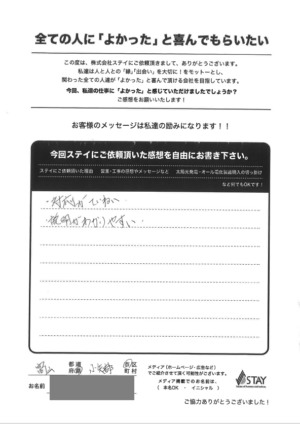 全ての人に「よかった」と喜んでもらいたい
この度は、株式会社ステイにご依頼頂きまして、ありがとうございます。
私達は人と人との「縁」「出会い」を大切に！をモットーとし、
関わった全ての人達が「よかった」と喜んで頂ける会社を目指しています。
今回、私達の仕事に「よかった」と感じていただけましたでしょうか？
ご感想をお願いいたします！
お客様のメッセージは私達の励みになります！！
今回ステイにご依頼頂いた感想を自由にお書き下さい。
ステイにご依頼頂いた理由　営業・工事の感想やメッセージなど　太陽光発電・オール電化製品購入のきっかけ
など何でもOKです！
・対応がていねい
・説明がわかりやすい
都道府県
町村
メディア（ホームページ・広告など）
でご紹介させて頂く可能性がございます。
お名前
メディア掲載でのお名前は、
（ 本名OK ・ イニシャル ）
STAY
ご協力ありがとうございました！